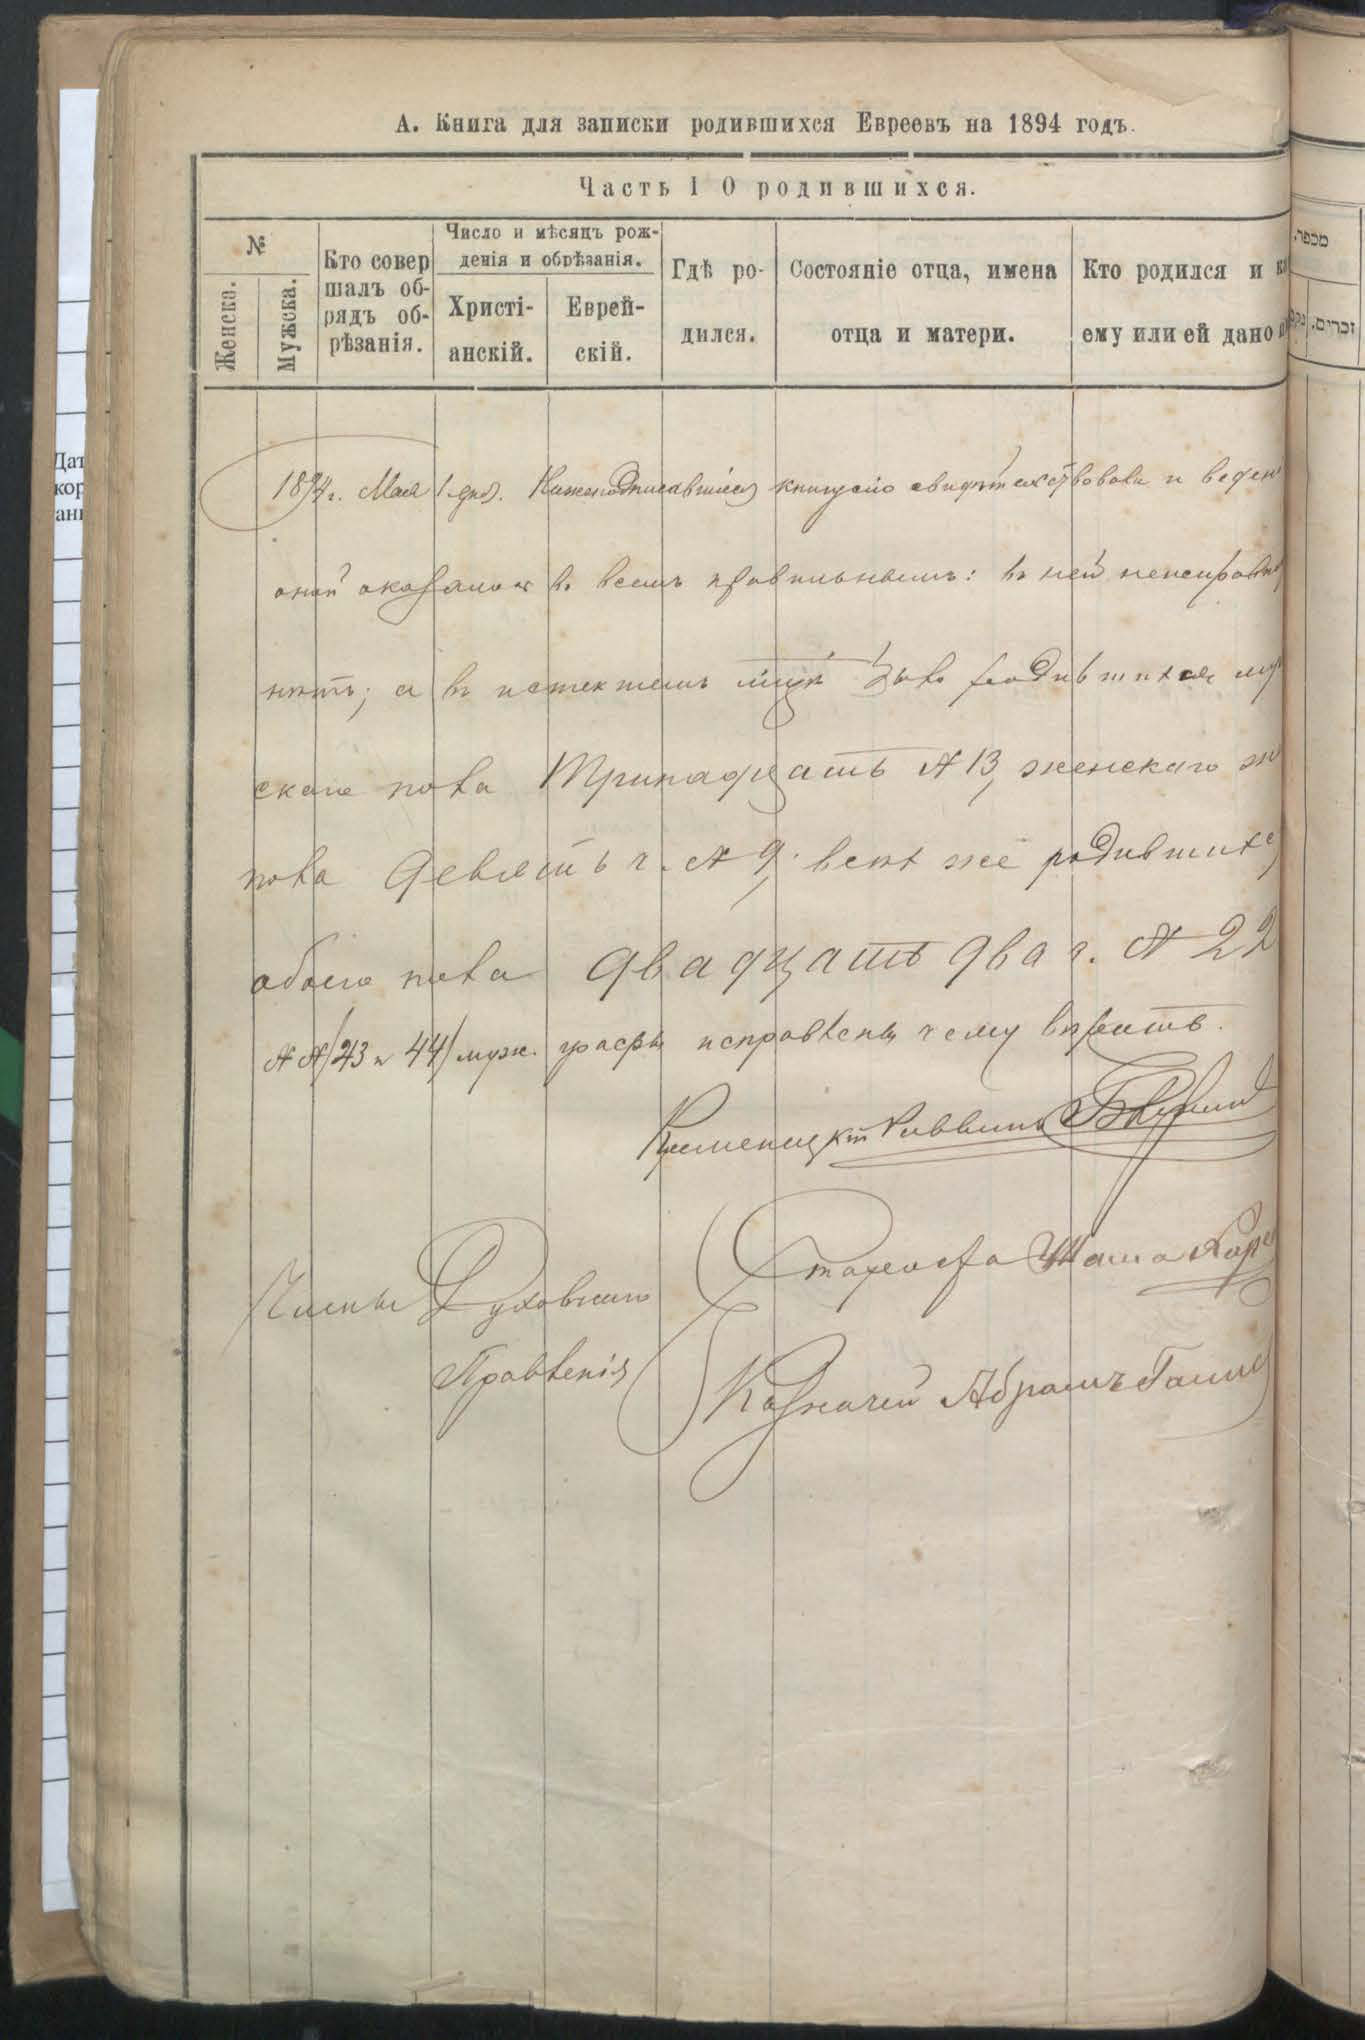 А. Книга для записки родившихся Евреевъ на 1894 годъ.
Часть I О родившихся.
№
Женска.
Мужска.
Кто совер
шалъ об-
рядъ об-
рѣзанія.
Число и мѣсяцъ рож-
денія и обрѣзанія.
Христі-
анскій.
Еврей-
скій.
Гдѣ ро-
дился.
Состояніе отца, имена
отца и матери.
Кто родился и
ему или ей дано
1894 г. Мая 1 дня. Нижеподписавшіеся книгу сію свидѣтельствовали и веден
оной оказалось во всемъ правильнымъ: въ ней неисправн
нѣтъ; а въ истекшемъ м-цѣ было родившихся му
скаго пола Тринадцать №13, женскаго же
пола девять ч. №9, всѣхъ же родившихс
обоего пола двадцать два ч. № 22
№№ 43 и 44 муж. графы исправлены чему вѣрить.
Кременецкій Раввинъ
Члены Духовнаго
Правленія
Староста
Казначей Абрамъ
Дат
кор
анн
מכפר.
זכרים.